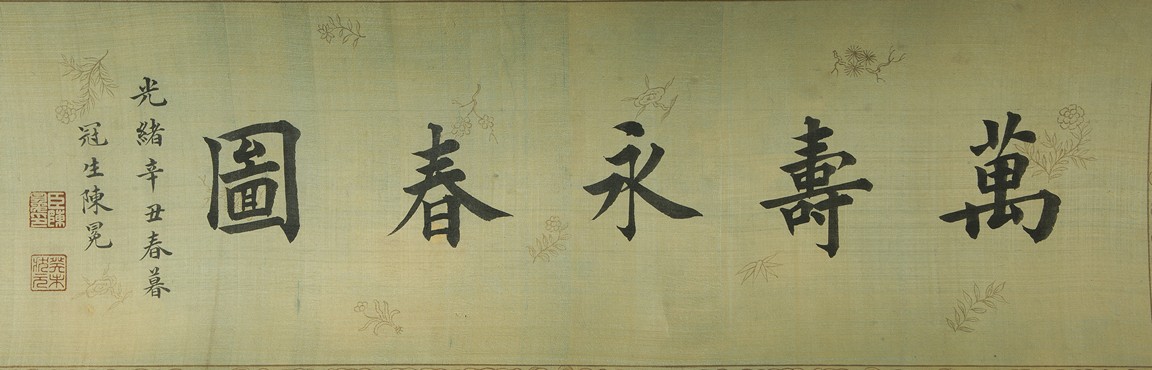 萬壽永春圖
光緒辛丑春暮
冠生陳冕